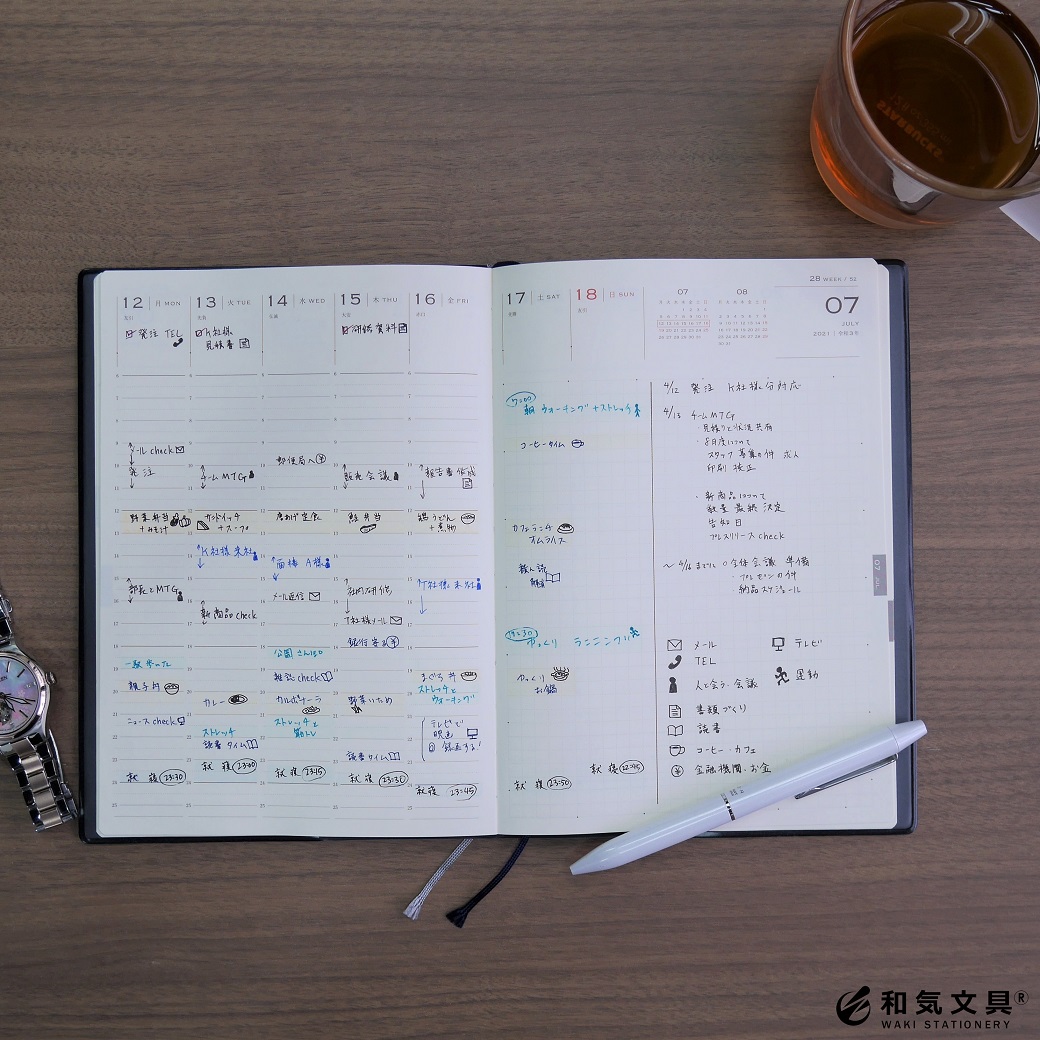 12 月 MON
先引
☑ 発注 TEL
メール check
発注
野菜弁当
+みそ汁
部長とMTG
一駅歩いた
親子丼
ニュース check
就寝 23:30
13 火 TUE
☑ K社様
見積書
チームMTG
サンドイッチ
+スープ
K社様来社
新商品check
カレー
ストレッチ
読書タイム
就寝
14 水 WED
郵便局へ
唐あげ定食
面接 A様
メール返信
公園さんぽ
雑誌check
カルボナーラ
ストレッチと
筋トレ
就寝 23:45
15 木 THU
大安
☑ 研修資料
販売会議
鮭弁当
社内研修
T社様メール
銀行寄る
野菜いため
読書タイム
就寝 23:30
16 金 FRI
赤口
報告書作成
鶏うどん
+煮物
T社様来社
まぐろ丼
ストレッチと
ウォーキング
テレビで
映画
録画する!
就寝 23:45
17 土 SAT
先勝
7:00
朝 ウォーキング+ストレッチ
コーヒータイム
カフェランチ
オムライス
19:30
ゆっくり ランニング
ゆっくり
お鍋
就寝 23:50
18 日 SUN
友引
就寝 22:45
07
08
28 WEEK / 52
07
JULY
2021 | 令和3年
4/12 発注 K社様分対応
4/13 チームMTG
・見積りと状況共有
・8月度について
スタッフ募集の件 求人
印刷 校正
・新商品について
数量最終決定
告知日
プレスリリースcheck
〜4/16までに ○全体会議 準備
・プレゼンの件
納品スケジュール
メール
テレビ
TEL
運動
人と会う・会議
書類づくり
読書
コーヒー・カフェ
金融機関・お金
07 JUL
STARBUCKS
和気文具®
WAKI STATIONERY